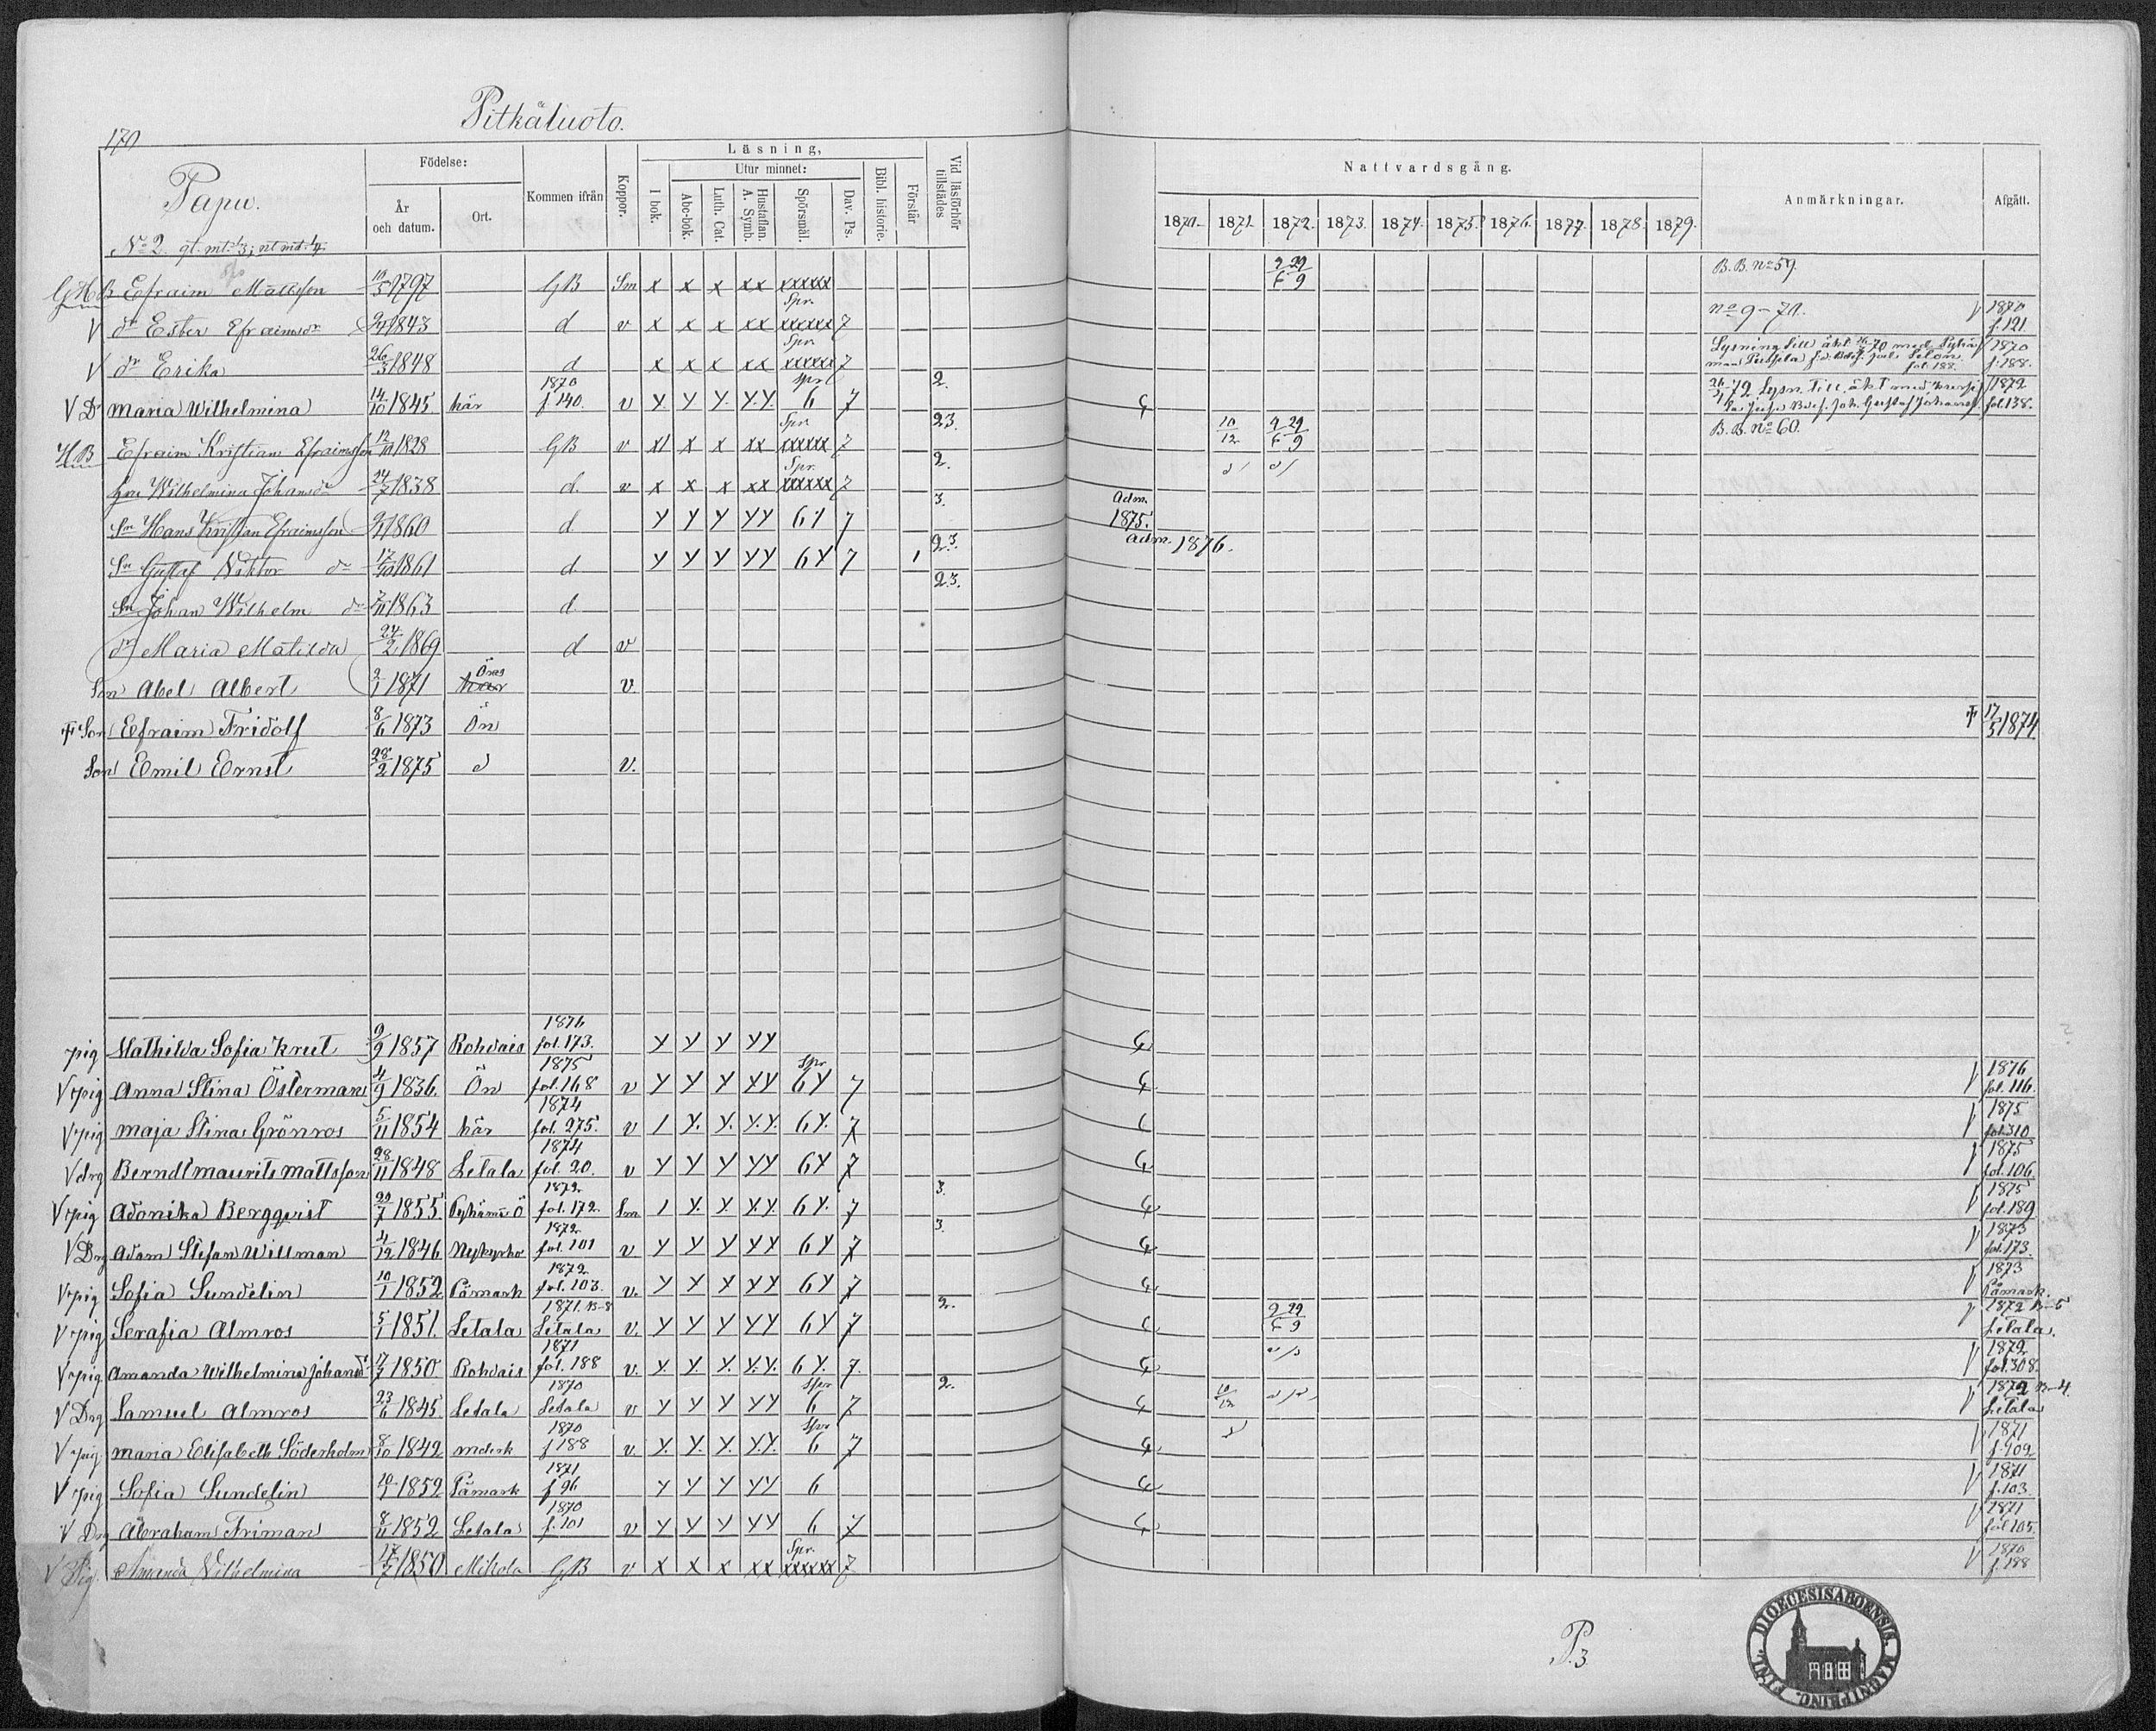 Pitkäluoto.
170
Papu.
No 2. gl. mt: 1/3; nt md: 1/4
Födelse:
År och datum.
Ort.
Kommen ifrån
Koppor.
Läsning,
I bok.
Utur minnet:
Abc-bok.
Luth. Cat.
Hustaflan. A. Symb.
Spörsmål.
Dav. Ps.
Bibl. historie.
Förstår
Vid läsförhör tillstädes
Nattvardsgång.
1870. 1871. 1872. 1873. 1874. 1875. 1876. 1877. 1878. 1879.
Anmärkningar.
Afgått.
GHB Efraim Mattsson 10/5 1797 GB Sm x x x xx xxxxx 9/6 29/9 B.B. No 59.
V dr Ester Efraimsdr 1843 d v x x x xx Spr. xxxxxx 7 No 9-70. V 1870 f. 121
V dr Erika 26/3 1848 d x x x xx Spr. xxxxxx 7 Lysning till äkt. 70 med fol. 188. V 1870 f. 188.
V Dr Maria Wilhelmina 14/10 1845 här 1870 f 140. v Y. Y Y. Y.Y. Spr 6 7 2. G 72 Lysn. till äkt med 1872 fol. 138.
HB Efraim Kristian Efraimsson 12/10 1828 GB v x x x xx Spr. xxxxxx 7 23. 10/12 9/6 29/9 B.B. No 60.
Hu Wilhelmina Johansdr 24/2 1838 d. v x x x xx Spr. xxxxxx 7 2. d/ d/
Sn Hans Kristian Efraimsson 1860 d Y Y Y YY 6Y 7 3. Adm. 1875.
Sn Gustaf Viktor dn 17/10 1861 d. Y Y Y YY 6Y 7 1 23. Adm. 1876.
Sn Johan Wilhelm dn 7/11 1863 d. 23.
dr Maria Matilda 24/2 1869 d v
Son Abel Albert 2/1 1871 här Önas v.
† Son Efraim Fridolf 8/6 1873 Ön † 17/5 1874.
Son Emil Ernst 28/2 1875 d v.
pig Mathilda Sofia Krut 9/9 1857 Rohdais 1876 fol. 173. Y Y Y YY G
V pig Anna Stina Österman 4/9 1836. Ön 1875 fol. 168 v Y Y Y YY Spr 6Y 7 G V 1876 fol. 116.
V pig Maja Stina Grönros 5/11 1854 här 1874 fol. 275. v 1 Y. Y. Y.Y. 6Y. 7 G V 1875 fol. 310
V drg Berndt Maurits Mattsson 28/11 1848 Letala 1874 fol. 20. v Y Y Y YY 6Y 7 G V 1875 fol. 106.
V pig Adonika Bergqvist 20/7 1855. Pyhämä Ö 1872. fol. 172. Sm 1 Y. Y. Y.Y. 6Y. 7 3. G V 1875 fol. 189
V Drg Adam Stefan Willman 4/12 1846. Nykyrko 1872 fol. 101 v Y Y Y YY 6Y 7 3. G V 1873 fol. 173.
V pig Sofia Sundelin 10/1 1852 Påmark 1872. fol. 103. v. Y Y Y YY 6Y 7 G V 1873 Påmark.
V pig Serafia Almros 5/1 1851. Letala 1871. B-8 Letala v. Y Y Y YY 6Y 7 2. G 9/6 29/9 V 1872 B-5 Letala.
V pig Amanda Wilhelmina Johansdr 17/7 1850 Rohdais 1871 fol. 188 v. Y. Y. Y. Y.Y. 6Y. 7. G V 1872 fol. 308.
V Drg Samuel Almros 23/6 1845 Letala 1870 Letala v Y Y Y YY Spr 6 7 2. G 10/12 V 1872 B-4. Letala
V pig. Maria Elisabeth Söderholm 8/10 1842 1870 f 188 v. Y. Y. Y. Y.Y. Spr 6 7 G V 1871 f. 102
V pig Sofia Sundelin 10/1 1852 Påmark 1871 f 96 Y Y Y YY 6 G V 1871 f. 103.
V Drg Abraham Friman 8/11 1852 Letala 1870 f. 101 v Y Y Y YY 6 7 G V 1871 fol 105.
V Pig. Amanda Vilhelmina 17/7 1850 Mikola GB v x x x xx Spr. xxxxxx 7 V 1870 f. 188
P. 3
DIOECESIS ABOENSIS. MAGNI PRINC. FINL.